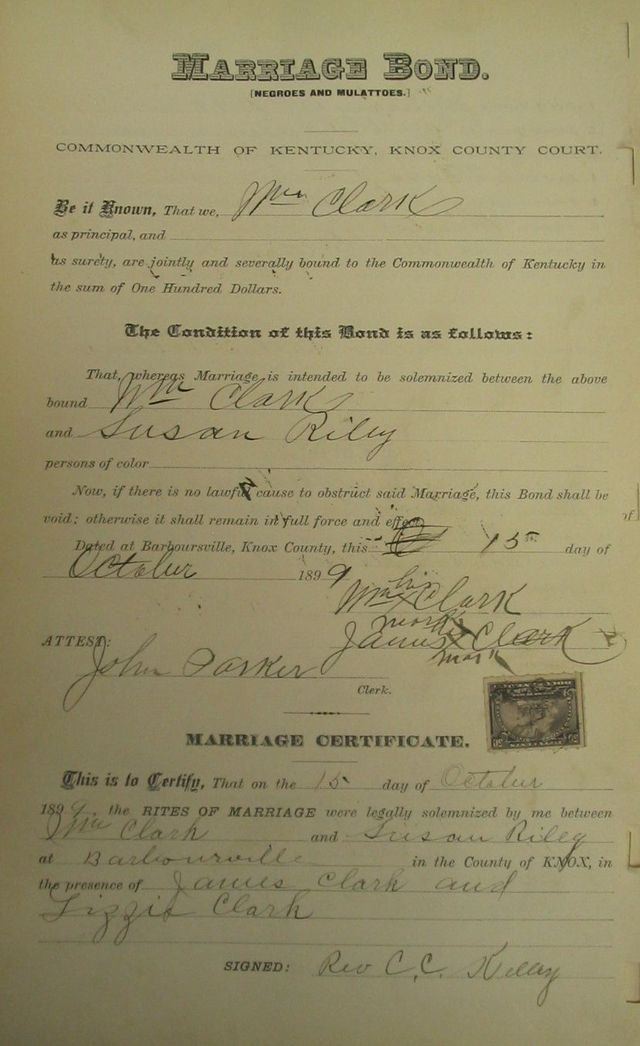 MARRIAGE BOND.
[NEGROES AND MULATTOES.]
COMMONWEALTH OF KENTUCKY, KNOX COUNTY COURT.
Be it Known, That we, Wm Clark
as principal, and
as surety, are jointly and severally bound to the Commonwealth of Kentucky in
the sum of One Hundred Dollars.
The Condition of this Bond is as follows:
That, whereas Marriage is intended to be solemnized between the above
bound Wm Clark
and Susan Riley
persons of color
Now, if there is no lawful cause to obstruct said Marriage, this Bond shall be
void; otherwise it shall remain in full force and effect.
Dated at Barboursville, Knox County, this 15th day of
October 1899
Wm his x Clark
mark
James x Clark
mark
ATTEST:
John Parker
Clerk.
MARRIAGE CERTIFICATE.
This is to Certify, That on the 15 day of October
1899, the RITES OF MARRIAGE were legally solemnized by me between
Wm Clark and Susan Riley
at Barbourville in the County of KNOX, in
the presence of James Clark and
Lizzie Clark
SIGNED: Rev C. C. Kelley